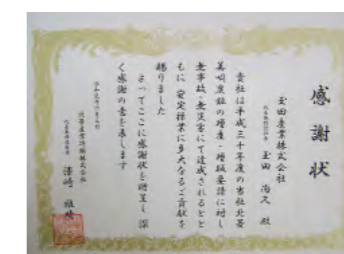 感謝状
玉田産業株式会社
代表取締役社長 玉田 尚久 殿
貴社は平成三十年度の当社北菱
美唄炭鉱の増産・増販要請に対し
無事故・無災害にて達成されるとと
もに安定操業に多大なるご貢献を
賜りました
よってここに感謝状を贈呈し深
く感謝の意を表します
北菱産業埠頭株式会社
代表取締役社長